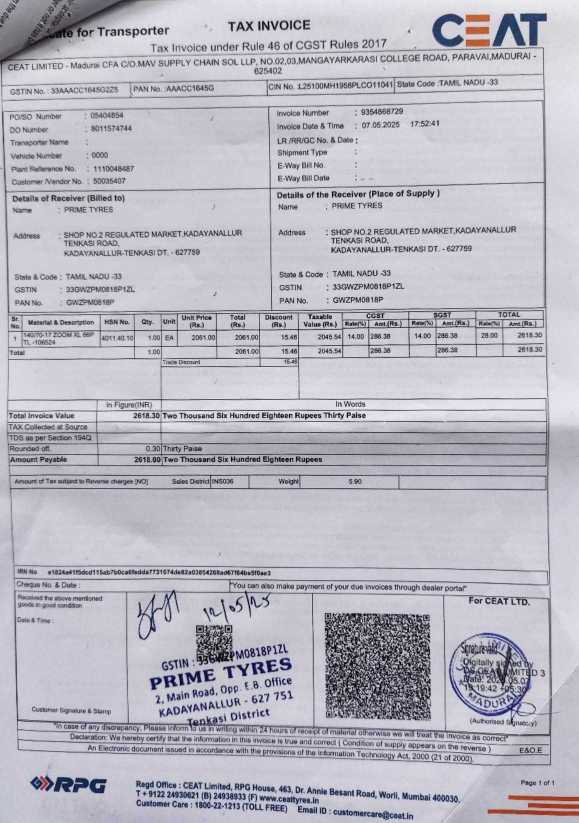 ate for Transporter
TAX INVOICE
CEAT
Tax Invoice under Rule 46 of CGST Rules 2017
CEAT LIMITED - Madurai CFA C/O.MAV SUPPLY CHAIN SOL LLP, NO.02,03,MANGAYARKARASI COLLEGE ROAD, PARAVAI,MADURAI - 625402
GSTIN No. : 33AAACC1645G2Z5 PAN No. : AAACC1645G CIN No. L25100MH1958PLCO11041 State Code :TAMIL NADU -33
PO/SO Number : 05404854
DO Number : 8011574744
Transporter Name :
Vehicle Number : 0000
Plant Reference No. : 1110048487
Customer /Vendor No. : 50035407
Invoice Number : 9354868729
Invoice Date & Time : 07.05.2025 17:52:41
LR /RR/GC No. & Date :
Shipment Type :
E-Way Bill No. :
E-Way Bill Date : . .
Details of Receiver (Billed to)
Name : PRIME TYRES
Address : SHOP NO.2 REGULATED MARKET,KADAYANALLUR
TENKASI ROAD,
KADAYANALLUR-TENKASI DT. - 627759
State & Code : TAMIL NADU -33
GSTIN : 33GWZPM0818P1ZL
PAN No. : GWZPM0818P
Details of the Receiver (Place of Supply )
Name : PRIME TYRES
Address : SHOP NO.2 REGULATED MARKET,KADAYANALLUR
TENKASI ROAD,
KADAYANALLUR-TENKASI DT. - 627759
State & Code : TAMIL NADU -33
GSTIN : 33GWZPM0818P1ZL
PAN No. : GWZPM0818P
Sr. No. Material & Description HSN No. Qty. Unit Unit Price (Rs.) Total (Rs.) Discount (Rs.) Taxable Value (Rs.) CGST Rate(%) Amt.(Rs.) SGST Rate(%) Amt.(Rs.) TOTAL Rate(%) Amt.(Rs.)
1 140/70-17 ZOOM XL 66P TL -106524 4011.40.10 1.00 EA 2061.00 2061.00 15.46 2045.54 14.00 286.38 14.00 286.38 28.00 2618.30
Total 1.00 2061.00 15.46 2045.54 286.38 286.38 2618.30
Trade Discount 15.46
in Figure(INR) In Words
Total Invoice Value 2618.30 Two Thousand Six Hundred Eighteen Rupees Thirty Paise
TAX Collected at Source
TDS as per Section 194Q
Rounded off. 0.30 Thirty Paise
Amount Payable 2618.00 Two Thousand Six Hundred Eighteen Rupees
Amount of Tax subject to Reverse charges [NO] Sales District INS036 Weight 5.90
IRN No
Cheque No. & Date : "You can also make payment of your due invoices through dealer portal"
Received the above mentioned
goods in good condition
Date & Time :
12/05/25
GSTIN : 33GWZPM0818P1ZL
PRIME TYRES
2, Main Road, Opp. E.B. Office
KADAYANALLUR - 627 751
Tenkasi District
Customer Signature & Stamp
For CEAT LTD.
Digitally signed by
DS CEAT LIMITED 3
Date: 2025.05.07
19:19:42 +05:30
MADURAI
(Authorised Signatory)
"In case of any discrepancy, Please inform to us in writing within 24 hours of receipt of material otherwise we will treat the invoice as correct"
Declaration: We hereby certify that the information in this invoice is true and correct ( Condition of supply appears on the reverse )
An Electronic document issued in accordance with the provisions of the Information Technology Act, 2000 (21 of 2000).
E&O.E
RPG
Page 1 of 1
Regd Office : CEAT Limited, RPG House, 463, Dr. Annie Besant Road, Worli, Mumbai 400030.
T + 9122 24930621 (B) 24938933 (F) www.ceattyres.in
Customer Care : 1800-22-1213 (TOLL FREE) Email ID : customercare@ceat.in